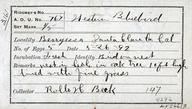 RECORDER'S NO.
A.O.U. No. 767 Western Bluebird
SET MARK 1/5
Locality Berryessa Santa Clara Co. Cal.
No. of Eggs 5 5-26-92
Incubation fresh Bird on nest
Remarks nest in hole in oak tree 10 ft high
lined with fine grass
Collector Rollo H. Beck 147